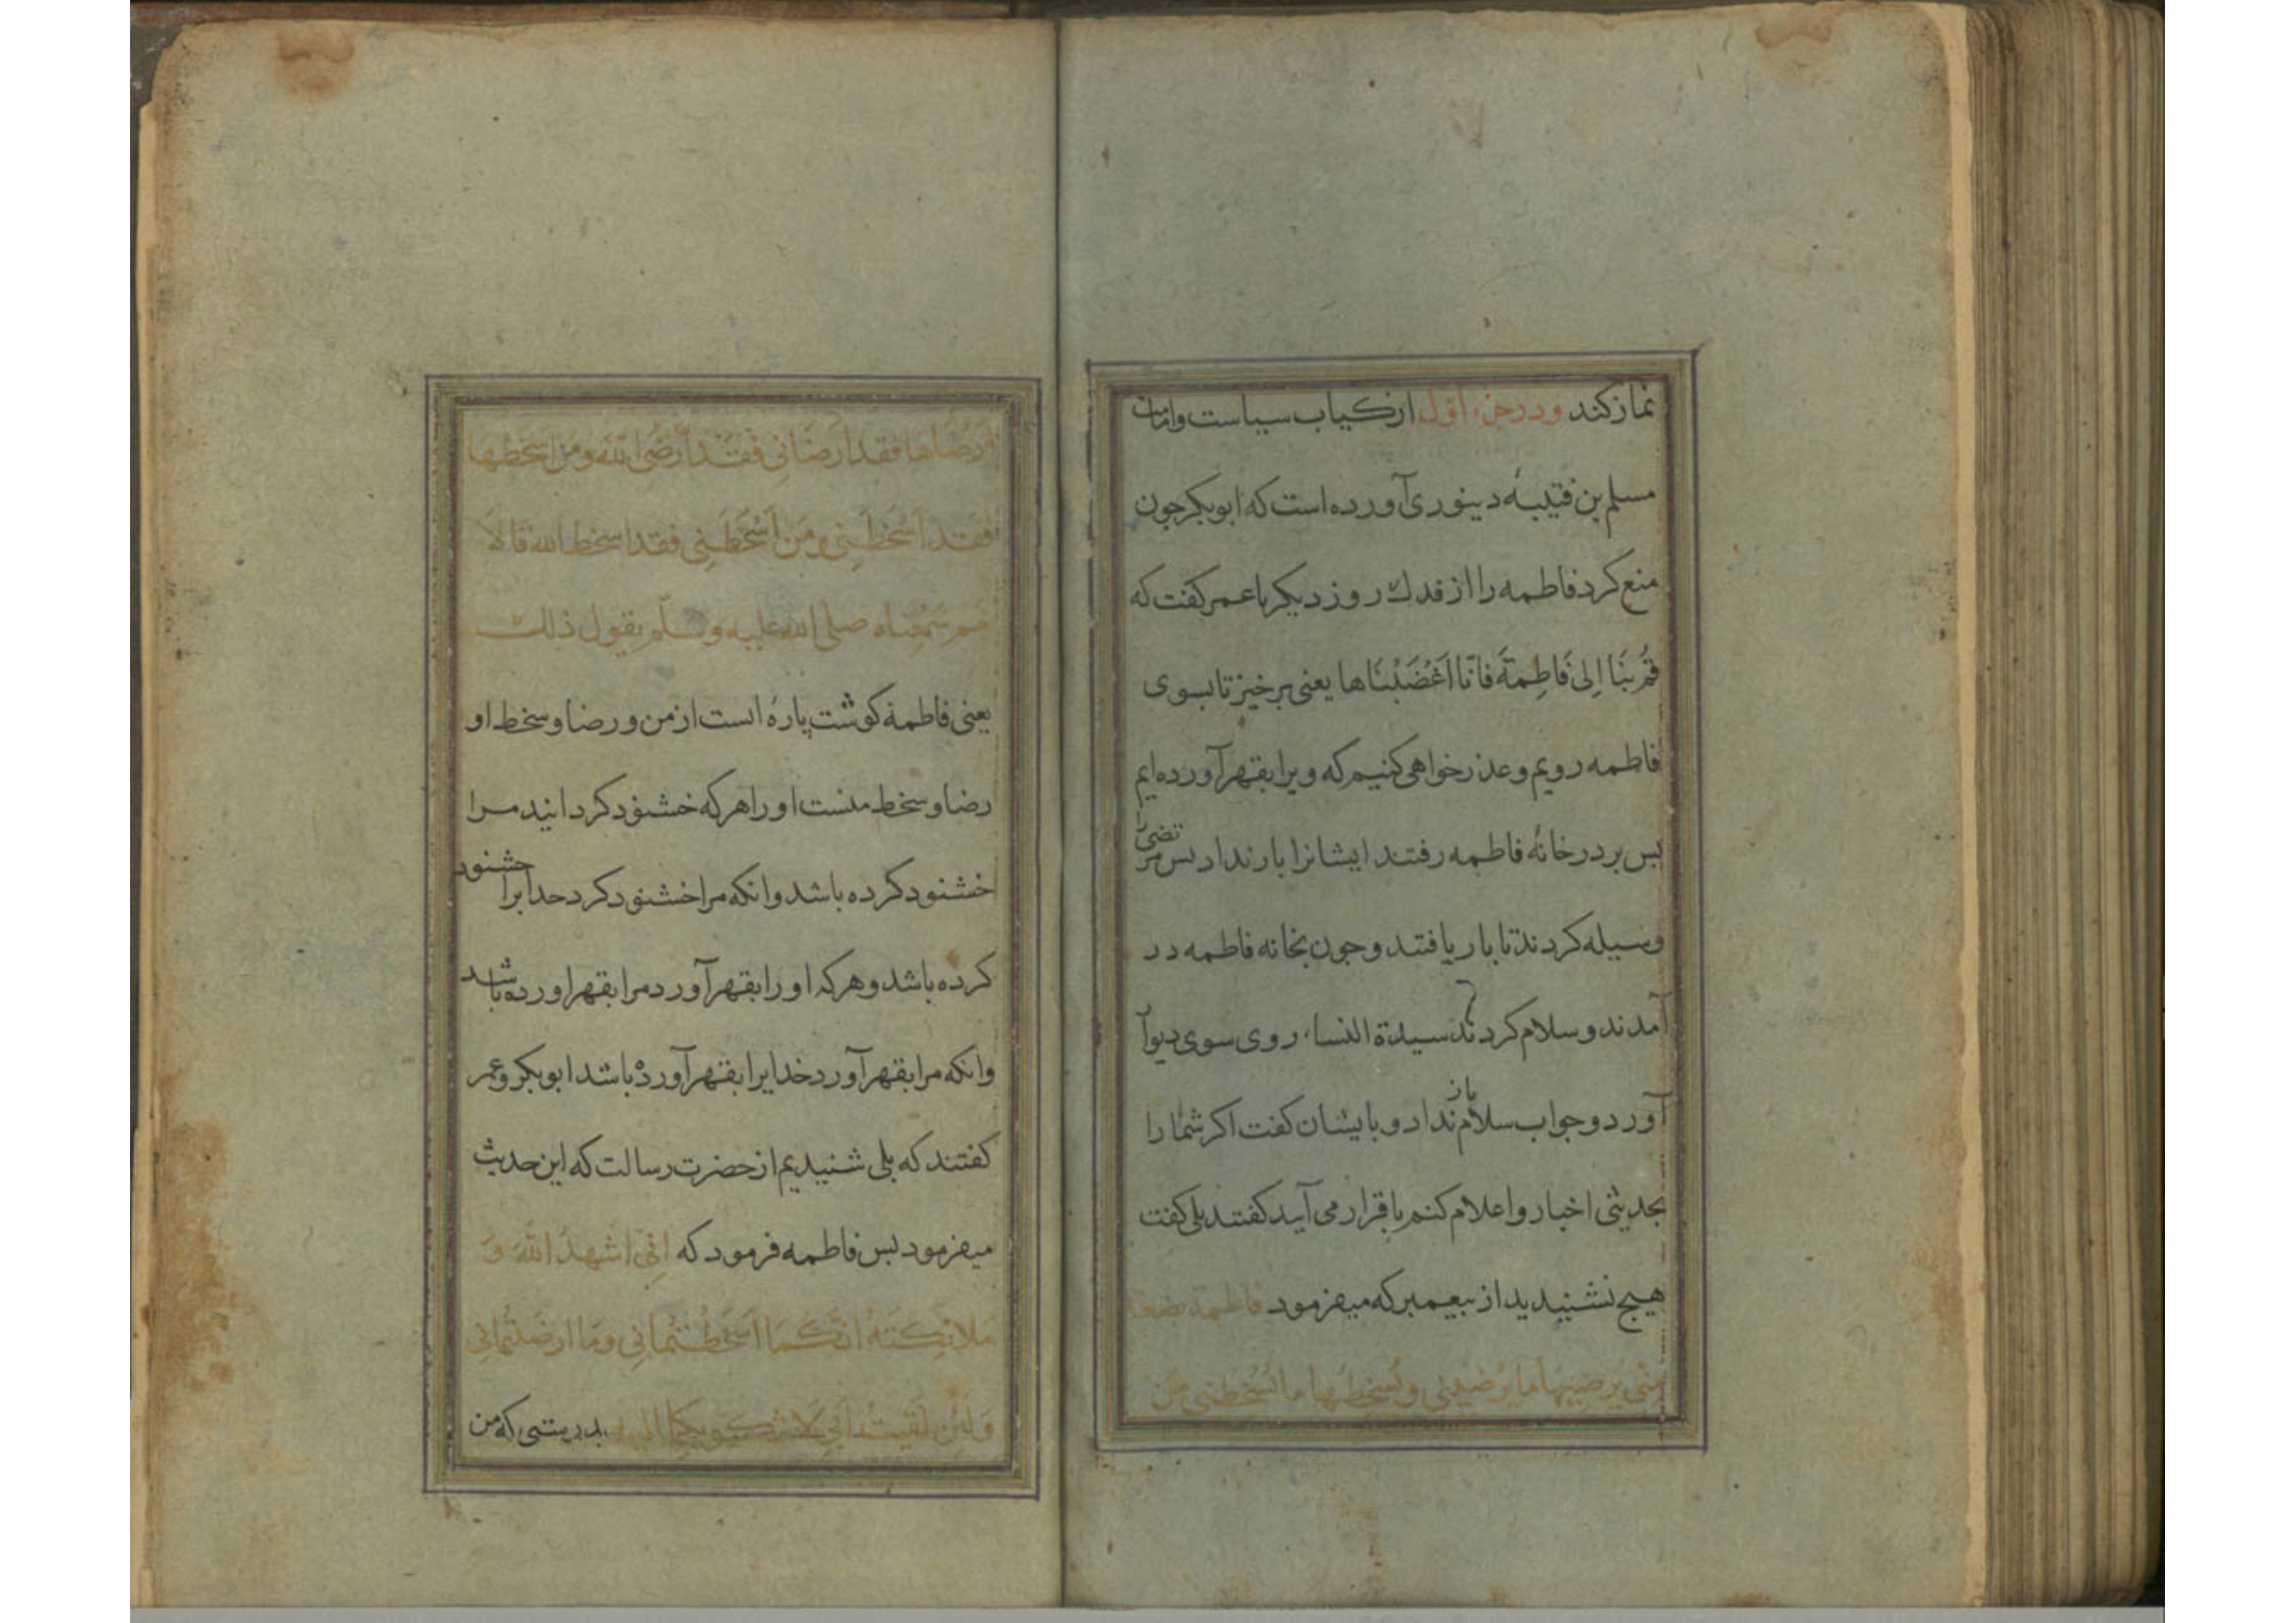 نماز کند ودر جزء اول از کتاب سیاست وامامت
مسلم بن قتیبهٔ دینوری آورده است که ابوبکر جون
منع کرد فاطمه را از فدك روز دیکر با عمر کفت که
قُمْ بِنَا اِلیٰ فَاطِمَةَ فَانّا اَغْضَبْنَاها یعنی برخیز تا بسوی
فاطمه رویم وعذر خواهی کنیم که ویرا بقهر آورده ایم
بس بر در خانهٔ فاطمه رفتند ایشانرا بار نداد بس مرتضی را
وسیله کردند تا بار یافتند وجون بخانه فاطمه در
آمدند وسلام کردند سیدة النساء روی سوی دیوار
آورد وجواب سلام باز نداد و بایشان کفت اکر شما را
بحدیثی اخبار واعلام کنم باقرار می آیید کفتند بلی کفت
هیج نشنیدید از بیغمبر که میفرمود فاطمة بضعة
مِنّی یرضیها ما یُرضینی ویُسخِطُها ما یُسخطنی مَن
اَرضَاها فقد ارضَانِی فَقَد اَرضَی اللّه ومَن اسخَطَها
فقد اَسْخَطَنِی ومَن اَسْخَطَنِی فقد اسخط الله قالا
نعم سَمِعْناه صلی الله علیه وسلّم یقول ذلك
یعنی فاطمه کوشت پارهٔ است از من ورضا وسخط او
رضا وسخط منست او را هر که خشنود کرد انید مرا
خشنود کرده باشد وانکه مرا خشنود کرد خدایرا خشنود
کرده باشد وهر که او را بقهر آورد مرا بقهر اورده باشد
وانکه مرا بقهر آورد خدایرا بقهر آورده باشد ابوبکر وعمر
کفتند که بلی شنیدیم از حضرت رسالت که این حدیث
میفرمود بس فاطمه فرمود که انّی اشهدُ اللّٰهَ وَ
مَلائِکَتَهُ انّکُمَا اَسخَطْتُمانِی ومَا ارضَیتُمانِی
وَلَئِن لَقیتُ النبی لاشکونکما الیه بدرستی که من